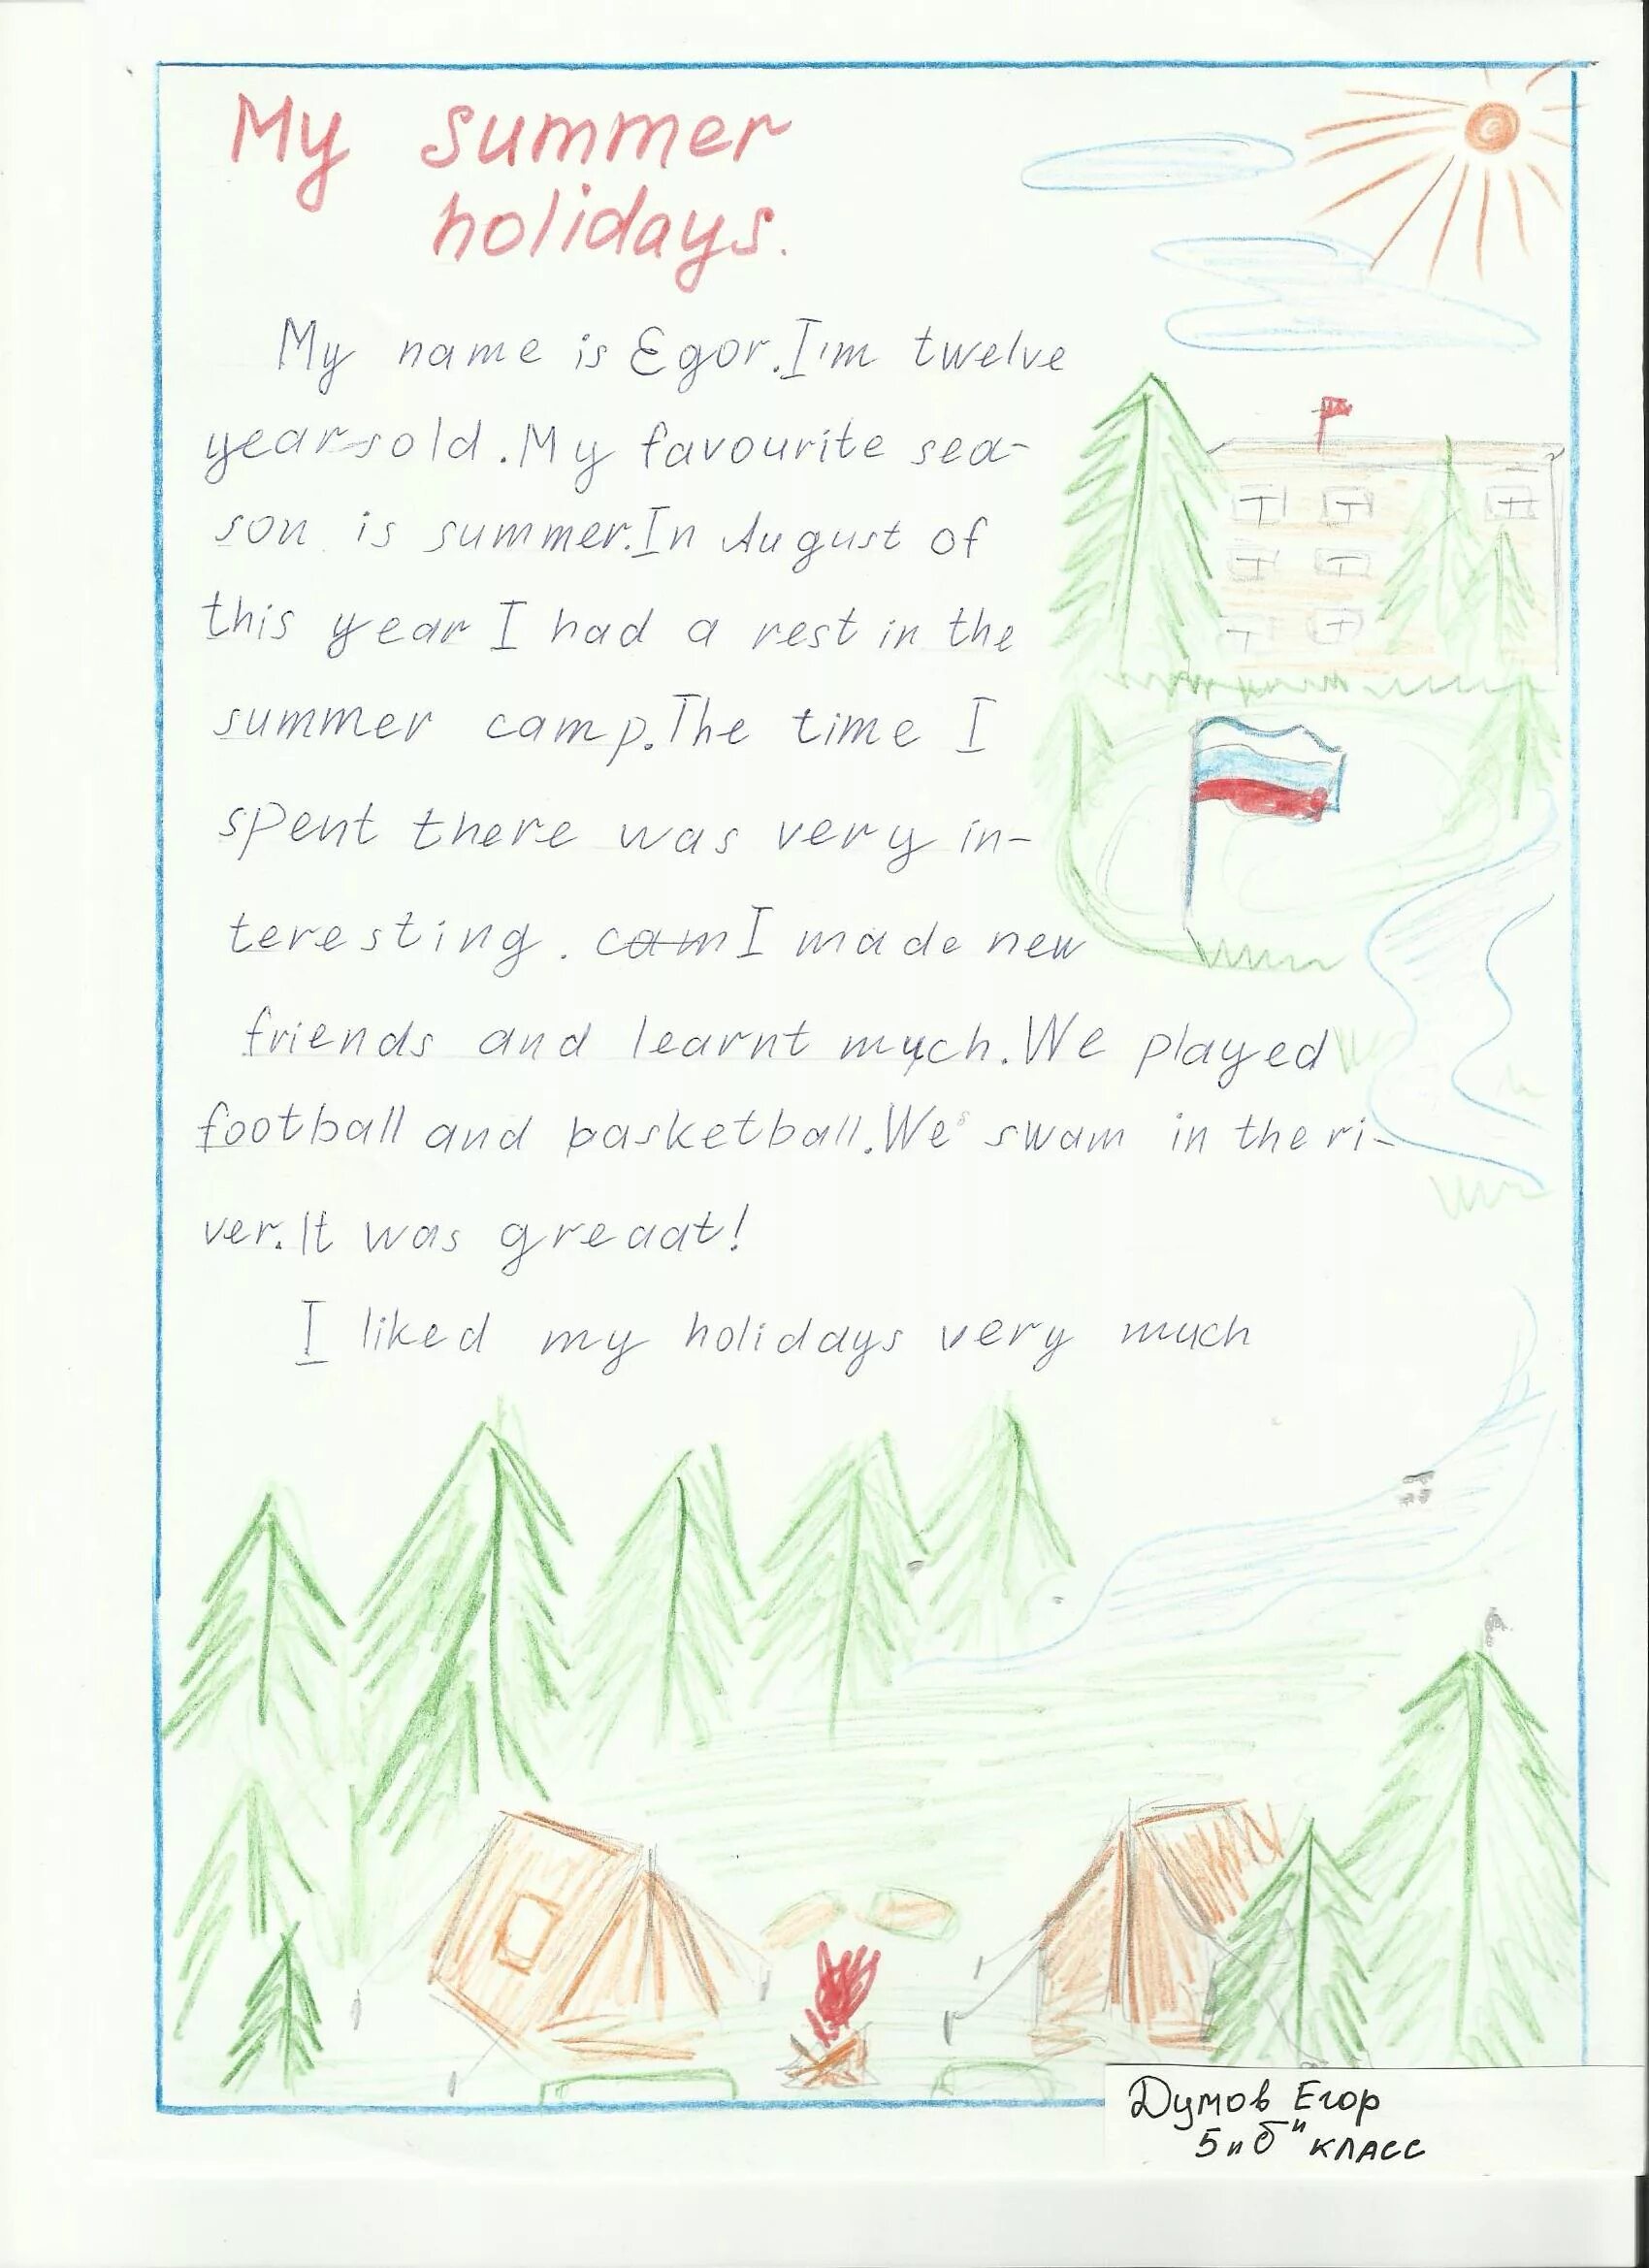 My summer
holidays.
My name is Egor. I'm twelve
years old. My favourite sea-
son is summer. In August of
this year I had a rest in the
summer camp. The time I
spent there was very in-
teresting. cam I made new
friends and learnt much. We played
football and basketball. We swam in the ri-
ver. It was greaat!
I liked my holidays very much
Думов Егор
5 "б" класс